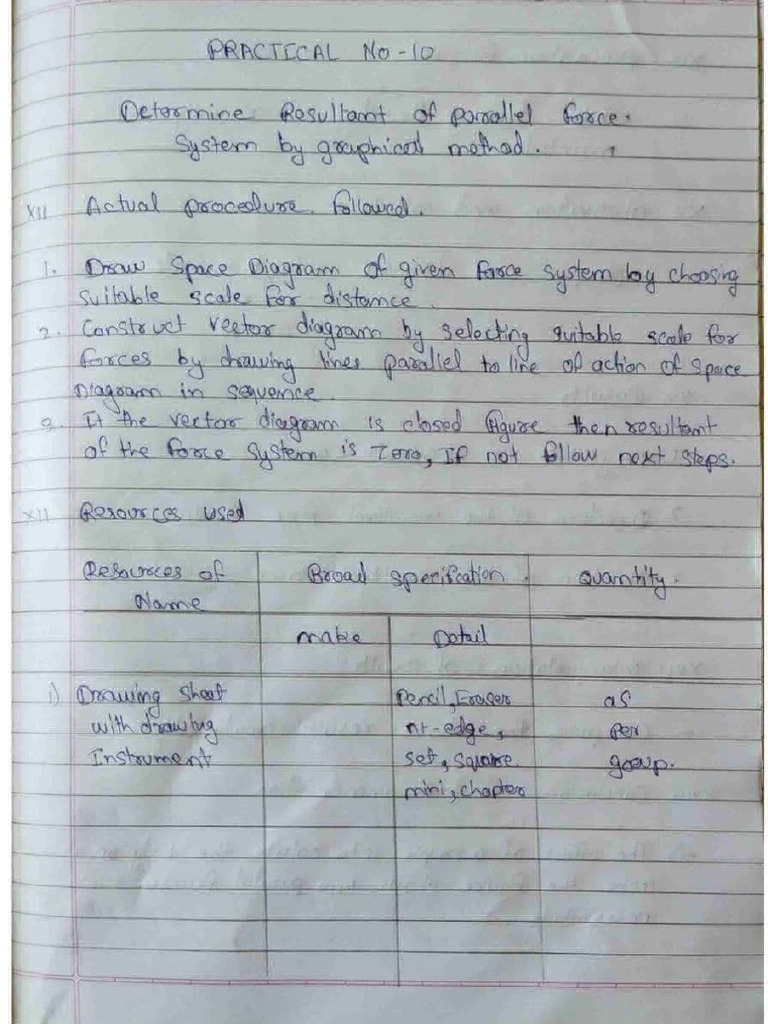 PRACTICAL NO - 10
Determine Resultant of parallel force.
System by graphical method.
XII Actual procedure. followed.
1. Draw Space Diagram of given force system by choosing
suitable scale for distance.
2. Construct vector diagram by selecting suitable scale for
forces by drawing lines parallel to line of action of space
Diagram in sequence.
3. If the vector diagram is closed figure then resultant
of the force system is Zero, If not follow next steps.
XII Resources used
Resources of Broad specification. Quantity.
Name
make Detail
i) Drawing sheet pencil, Eraser as
with drawing nt-edge, per
Instrument set, square goup.
mini, chapter